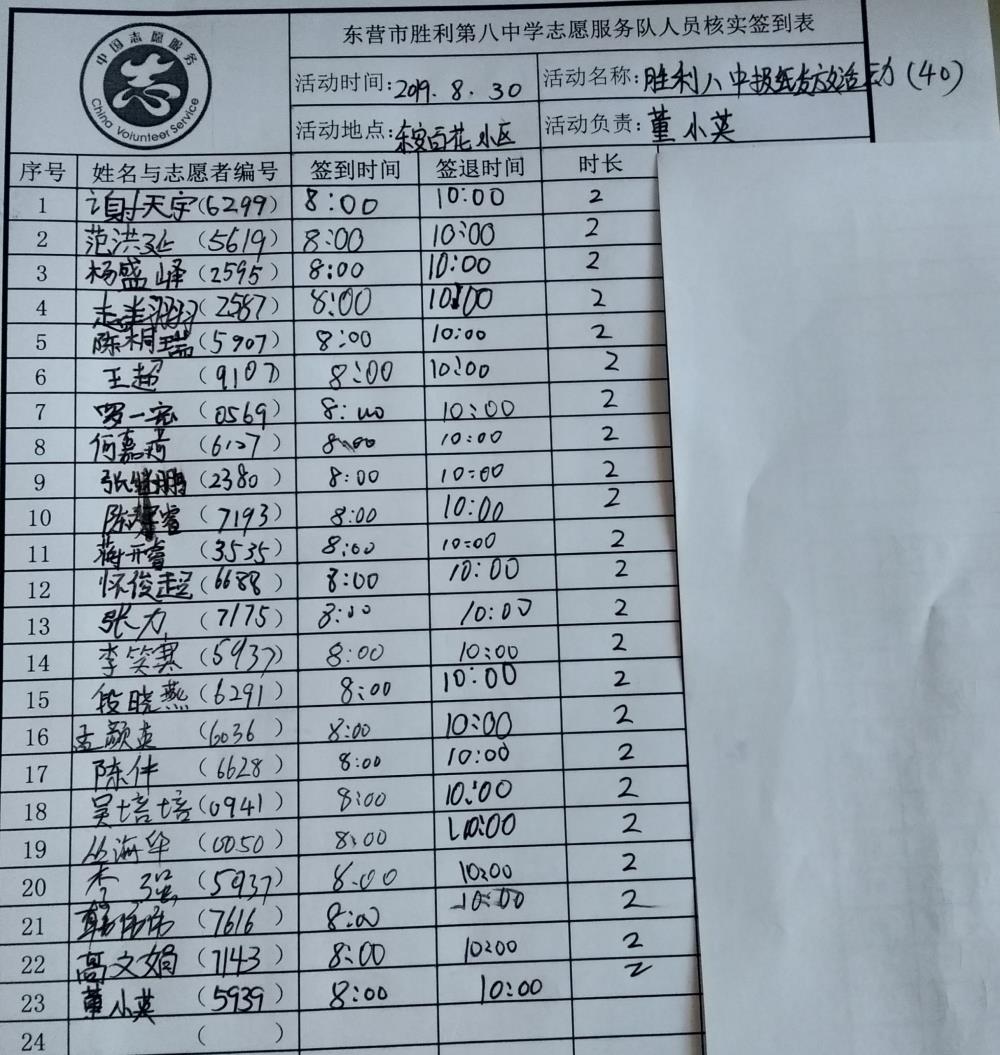 东营市胜利第八中学志愿服务队人员核实签到表
中国志愿服务
志
China Volunteer Service
活动时间:2019.8.30 活动名称:胜利八中报纸发放活动(40)
活动地点:东安百花小区 活动负责:董小英
序号 姓名与志愿者编号 签到时间 签退时间 时长
1 谢天宇(6299) 8:00 10:00 2
2 范洪延(5619) 8:00 10:00 2
3 杨盛峰(2595) 8:00 10:00 2
4 (2587) 8:00 10:00 2
5 陈桐瑞(5907) 8:00 10:00 2
6 王超(9107) 8:00 10:00 2
7 罗一宏(0569) 8:00 10:00 2
8 何嘉琦(6127) 8:00 10:00 2
9 张继鹏(2380) 8:00 10:00 2
10 (7193) 8:00 10:00 2
11 蒋开睿(3535) 8:00 10:00 2
12 怀俊超(6688) 8:00 10:00 2
13 张力(7175) 8:00 10:00 2
14 李笑寒(5937) 8:00 10:00 2
15 段晓燕(6291) 8:00 10:00 2
16 孟颜英(6036) 8:00 10:00 2
17 陈伟(6628) 8:00 10:00 2
18 吴培培(0941) 8:00 10:00 2
19 丛海华(0050) 8:00 10:00 2
20 李强(5937) 8:00 10:00 2
21 韩伟伟(7616) 8:00 10:00 2
22 高文娟(7143) 8:00 10:00 2
23 董小英(5939) 8:00 10:00 2
24 ( )